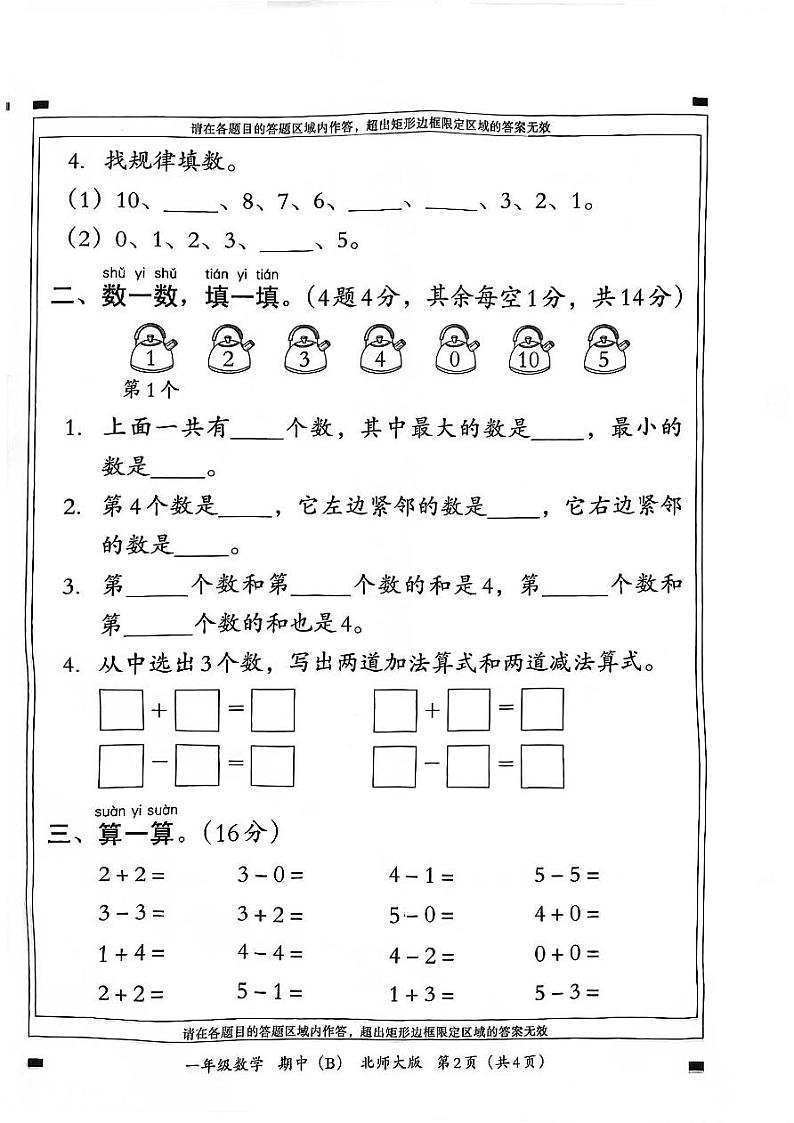 请在各题目的答题区域内作答，超出矩形边框限定区域的答案无效
4. 找规律填数。
（1）10、____、8、7、6、____、____、3、2、1。
（2）0、1、2、3、____、5。
shǔ yi shǔ tián yi tián
二、数一数，填一填。（4题4分，其余每空1分，共14分）
1 2 3 4 0 10 5
第1个
1. 上面一共有____个数，其中最大的数是____，最小的
数是____。
2. 第4个数是____，它左边紧邻的数是____，它右边紧邻
的数是____。
3. 第____个数和第____个数的和是4，第____个数和
第____个数的和也是4。
4. 从中选出3个数，写出两道加法算式和两道减法算式。
□+□=□ □+□=□
□-□=□ □-□=□
suàn yi suàn
三、算一算。（16分）
2+2= 3-0= 4-1= 5-5=
3-3= 3+2= 5-0= 4+0=
1+4= 4-4= 4-2= 0+0=
2+2= 5-1= 1+3= 5-3=
请在各题目的答题区域内作答，超出矩形边框限定区域的答案无效
一年级数学 期中（B） 北师大版 第2页（共4页）